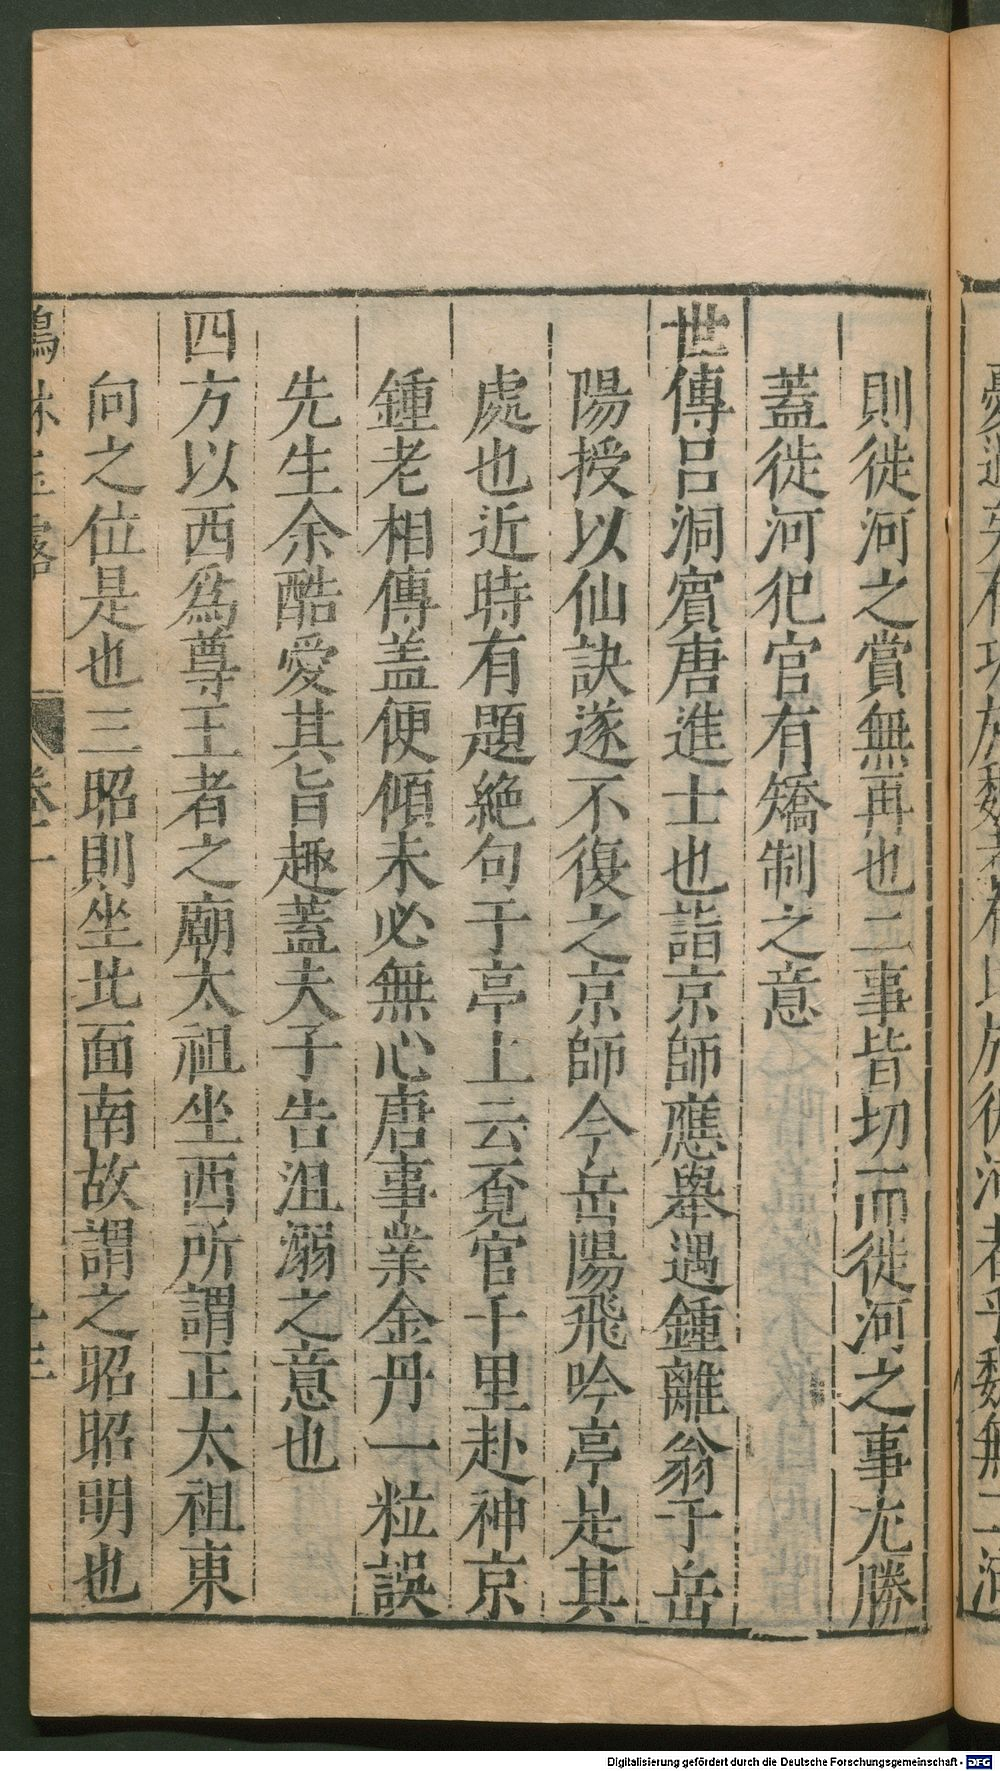 則徙河之賞無再也二事皆切而徙河之事尤勝
蓋徙河犯官有矯制之意
世傳呂洞賓唐進士也詣京師應舉遇鍾離翁于岳
陽授以仙訣遂不復之京師今岳陽飛吟亭是其
處也近時有題絶句于亭上云覔官千里赴神京
鍾老相傳盖便傾未必無心唐事業金丹一粒誤
先生余酷愛其旨趣蓋夫子告沮溺之意也
四方以西爲尊王者之廟太祖坐西所謂正太祖東
向之位是也三昭則坐北面南故謂之昭昭明也
Digitalisierung gefördert durch die Deutsche Forschungsgemeinschaft - DFG